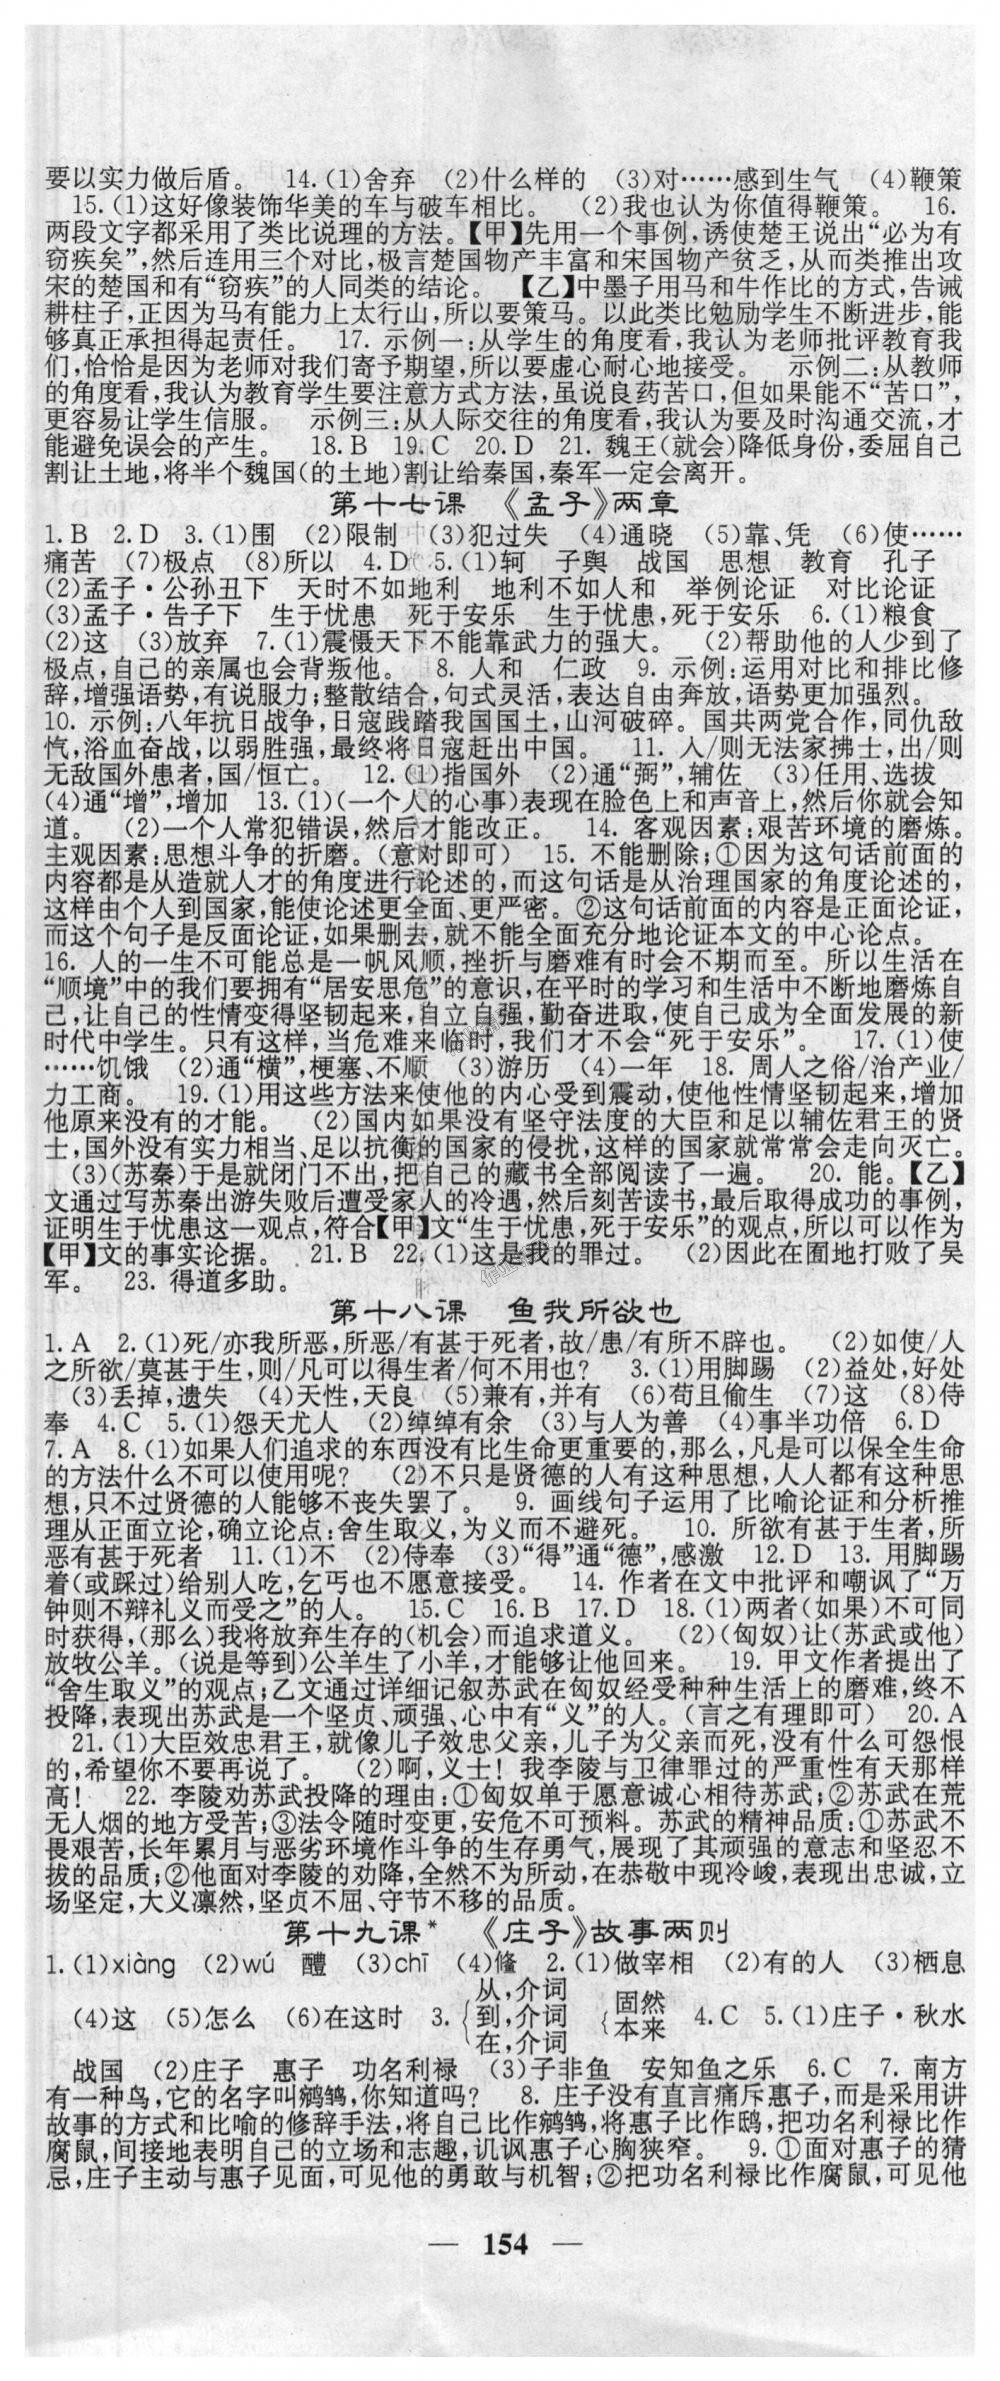 要以实力做后盾。 14.(1)舍弃 (2)什么样的 (3)对……感到生气 (4)鞭策
15.(1)这好像装饰华美的车与破车相比。 (2)我也认为你值得鞭策。 16.
两段文字都采用了类比说理的方法。【甲】先用一个事例,诱使楚王说出“必为有
窃疾矣”,然后连用三个对比,极言楚国物产丰富和宋国物产贫乏,从而类推出攻
宋的楚国和有“窃疾”的人同类的结论。 【乙】中墨子用马和牛作比的方式,告诫
耕柱子,正因为马有能力上太行山,所以要策马。以此类比勉励学生不断进步,能
够真正承担得起责任。 17. 示例一:从学生的角度看,我认为老师批评教育我
们,恰恰是因为老师对我们寄予期望,所以要虚心耐心地接受。 示例二:从教师
的角度看,我认为教育学生要注意方式方法,虽说良药苦口,但如果能不“苦口”,
更容易让学生信服。 示例三:从人际交往的角度看,我认为要及时沟通交流,才
能避免误会的产生。 18.B 19.C 20.D 21. 魏王(就会)降低身份,委屈自己
割让土地,将半个魏国(的土地)割让给秦国,秦军一定会离开。
第十七课 《孟子》两章
1.B 2.D 3.(1)围 (2)限制 (3)犯过失 (4)通晓 (5)靠、凭 (6)使……
痛苦 (7)极点 (8)所以 4.D 5.(1)轲 子舆 战国 思想 教育 孔子
(2)孟子·公孙丑下 天时不如地利 地利不如人和 举例论证 对比论证
(3)孟子·告子下 生于忧患 死于安乐 生于忧患,死于安乐 6.(1)粮食
(2)这 (3)放弃 7.(1)震慑天下不能靠武力的强大。 (2)帮助他的人少到了
极点,自己的亲属也会背叛他。 8. 人和 仁政 9. 示例:运用对比和排比修
辞,增强语势,有说服力;整散结合,句式灵活,表达自由奔放,语势更加强烈。
10. 示例:八年抗日战争,日寇践踏我国国土,山河破碎。国共两党合作,同仇敌
忾,浴血奋战,以弱胜强,最终将日寇赶出中国。 11. 入/则无法家拂士,出/则
无敌国外患者,国/恒亡。 12.(1)指国外 (2)通“弼”,辅佐 (3)任用、选拔
(4)通“增”,增加 13.(1)(一个人的心事)表现在脸色上和声音上,然后你就会知
道。 (2)一个人常犯错误,然后才能改正。 14. 客观因素:艰苦环境的磨炼。
主观因素:思想斗争的折磨。(意对即可) 15. 不能删除;①因为这句话前面的
内容都是从造就人才的角度进行论述的,而这句话是从治理国家的角度论述的,
这样由个人到国家,能使论述更全面、更严密。②这句话前面的内容是正面论证,
而这个句子是反面论证,如果删去,就不能全面充分地论证本文的中心论点。
16. 人的一生不可能总是一帆风顺,挫折与磨难有时会不期而至。所以生活在
“顺境”中的我们要拥有“居安思危”的意识,在平时的学习和生活中不断地磨炼自
己,让自己的性情变得坚韧起来,自立自强,勤奋进取,使自己成为全面发展的新
时代中学生。只有这样,当危难来临时,我们才不会“死于安乐”。 17.(1)使
……饥饿 (2)通“横”,梗塞、不顺 (3)游历 (4)一年 18. 周人之俗/治产业/
力工商。 19.(1)用这些方法来使他的内心受到震动,使他性情坚韧起来,增加
他原来没有的才能。 (2)国内如果没有坚守法度的大臣和足以辅佐君王的贤
士,国外没有实力相当、足以抗衡的国家的侵扰,这样的国家就常常会走向灭亡。
(3)(苏秦)于是就闭门不出,把自己的藏书全部阅读了一遍。 20. 能。【乙】
文通过写苏秦出游失败后遭受家人的冷遇,然后刻苦读书,最后取得成功的事例,
证明生于忧患这一观点,符合【甲】文“生于忧患,死于安乐”的观点,所以可以作为
【甲】文的事实论据。 21.B 22.(1)这是我的罪过。 (2)因此在囿地打败了吴
军。 23. 得道多助。
第十八课 鱼我所欲也
1.A 2.(1)死/亦我所恶,所恶/有甚于死者,故/患/有所不辟也。 (2)如使/人
之所欲/莫甚于生,则/凡可以得生者/何不用也? 3.(1)用脚踢 (2)益处,好处
(3)丢掉,遗失 (4)天性,天良 (5)兼有,并有 (6)苟且偷生 (7)这 (8)侍
奉 4.C 5.(1)怨天尤人 (2)绰绰有余 (3)与人为善 (4)事半功倍 6.D
7.A 8.(1)如果人们追求的东西没有比生命更重要的,那么,凡是可以保全生命
的方法什么不可以使用呢? (2)不只是贤德的人有这种思想,人人都有这种思
想,只不过贤德的人能够不丧失罢了。 9. 画线句子运用了比喻论证和分析推
理从正面立论,确立论点:舍生取义,为义而不避死。 10. 所欲有甚于生者,所
恶有甚于死者 11.(1)不 (2)侍奉 (3)“得”通“德”,感激 12.D 13. 用脚踢
着(或踩过)给别人吃,乞丐也不愿意接受。 14. 作者在文中批评和嘲讽了“万
钟则不辩礼义而受之”的人。 15.C 16.B 17.D 18.(1)两者(如果)不可同
时获得,(那么)我将放弃生存的(机会)而追求道义。 (2)(匈奴)让(苏武或他)
放牧公羊。(说是等到)公羊生了小羊,才能够让他回来。 19. 甲文作者提出了
“舍生取义”的观点;乙文通过详细记叙苏武在匈奴经受种种生活上的磨难,终不
投降,表现出苏武是一个坚贞、顽强、心中有“义”的人。(言之有理即可) 20.A
21.(1)大臣效忠君王,就像儿子效忠父亲,儿子为父亲而死,没有什么可怨恨
的,希望你不要再说了。 (2)啊,义士!我李陵与卫律罪过的严重性有天那样
高! 22. 李陵劝苏武投降的理由:①匈奴单于愿意诚心相待苏武;②苏武在荒
无人烟的地方受苦;③法令随时变更,安危不可预料。苏武的精神品质:①苏武不
畏艰苦,长年累月与恶劣环境作斗争的生存勇气,展现了其顽强的意志和坚忍不
拔的品质;②他面对李陵的劝降,全然不为所动,在恭敬中现冷峻,表现出忠诚,立
场坚定,大义凛然,坚贞不屈、守节不移的品质。
第十九课* 《庄子》故事两则
1.(1)xiàng (2)wú 醴 (3)chī (4)鯈 2.(1)做宰相 (2)有的人 (3)栖息
(4)这 (5)怎么 (6)在这时 3. {从,介词 到,介词 在,介词 {固然 本来 4.C 5.(1)庄子·秋水
战国 (2)庄子 惠子 功名利禄 (3)子非鱼 安知鱼之乐 6.C 7. 南方
有一种鸟,它的名字叫鹓鶵,你知道吗? 8. 庄子没有直言痛斥惠子,而是采用讲
故事的方式和比喻的修辞手法,将自己比作鹓鶵,将惠子比作鸱,把功名利禄比作
腐鼠,间接地表明自己的立场和志趣,讥讽惠子心胸狭窄。 9.①面对惠子的猜
忌,庄子主动与惠子见面,可见他的勇敢与机智;②把功名利禄比作腐鼠,可见他
— 154 —